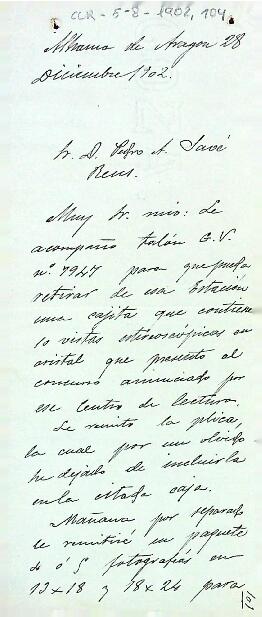 CLR - 5-8-1902, 104
Alhama de Aragon 28
Diciembre 1902.
Sr. D. Pedro A. Savé
Reus.
Muy Sr. mio: Le
acompaño talón G.V.
nº. 7947 para que pueda
retirar de esa Estación
una cajita que contiene
10 vistas estereoscópicas en
cristal que presento al
concurso anunciado por
ese Centro de lectura.
Le remito la plica,
la cual por un olvido
he dejado de incluirla
en la citada caja.
Mañana por separado
le remitiré un paquete
de 6 ó 8 fotografías en
13 x 18 y 18 x 24 para
101